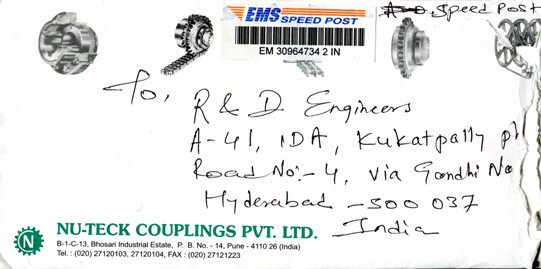 EMS SPEED POST
EM 30964734 2 IN
Speed Post
To,
R & D Engineers
A-41, IDA, Kukatpally
Road No:- 4, via Gandhi
Hyderabad - 500 037
India
NU-TECK COUPLINGS PVT. LTD.
B-1-C-13, Bhosari Industrial Estate, P. B. No. - 14, Pune - 4110 26 (India)
Tel. : (020) 27120103, 27120104, FAX : (020) 27121223